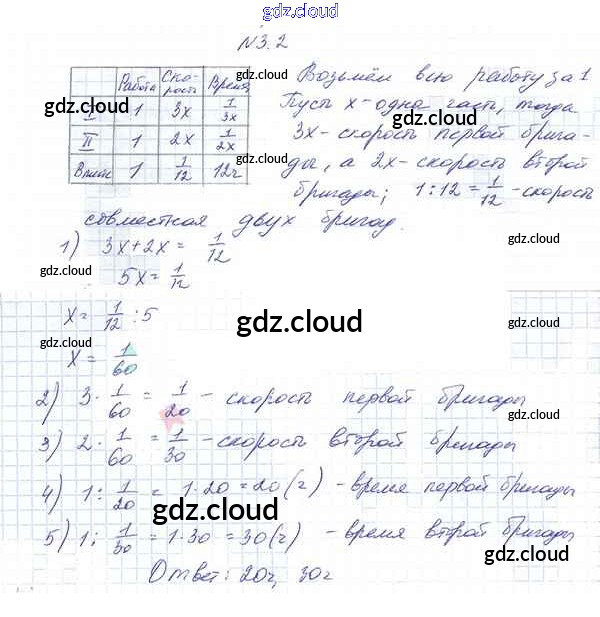 gdz.cloud
N3.2
Работа Ско-рость Время
I 1 3x 1/3x
II 1 2x 1/2x
Вместе 1 1/12 12ч
gdz.cloud
gdz.cloud
Возьмём всю работу за 1
Пусть x - одна часть, тогда
gdz.cloud
3x - скорость первой брига-
ды, а 2x - скорость второй
gdz.cloud
бригады; 1:12 = 1/12 - скорость
совместная двух бригад.
gdz.cloud
1) 3x+2x = 1/12
5x = 1/12
gdz.cloud
x = 1/12 : 5
gdz.cloud
gdz.cloud
x = 1/60
2) 3 · 1/60 = 1/20 - скорость первой бригады
gdz.cloud
3) 2 · 1/60 = 1/30 - скорость второй бригады
4) 1 : 1/20 = 1·20 = 20 (ч) - время первой бригады
gdz.cloud
5) 1 : 1/30 = 1·30 = 30 (ч) - время второй бригады
gdz.cloud
gdz.cloud
Ответ: 20ч, 30ч